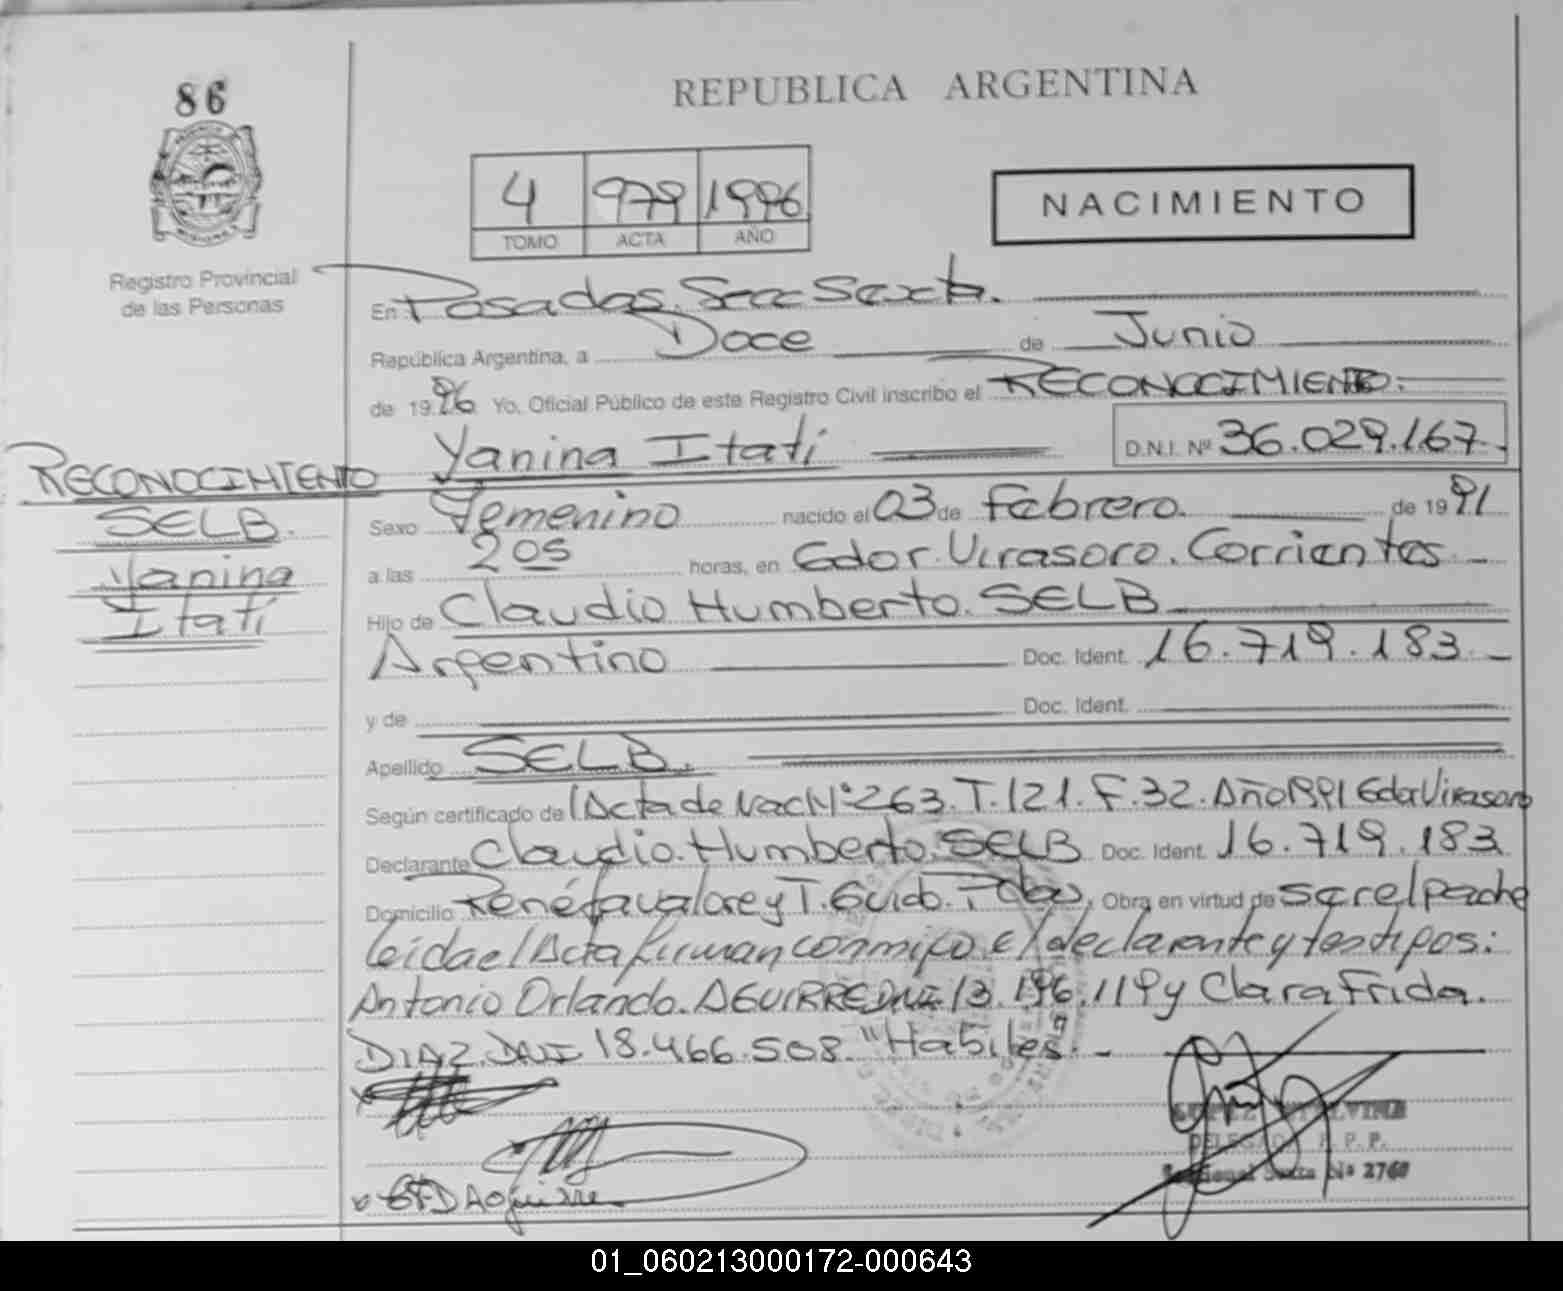 86
REPUBLICA ARGENTINA
4 979 1996
TOMO ACTA AÑO
NACIMIENTO
Registro Provincial
de las Personas
En Posadas. Secc Sexta.
República Argentina, a Doce de Junio
de 1996 Yo, Oficial Público de este Registro Civil inscribo el RECONOCIMIENTO:
Yanina Itatí D.N.I. Nº 36.029.167.
RECONOCIMIENTO
SELB.
Yanina
Itatí
Sexo Femenino nacido el 03 de Febrero. de 1991
a las 20s horas, en Gdor. Virasoro. Corrientes
Hijo de Claudio Humberto. SELB
Argentino Doc. Ident. 16.719.183.
y de Doc. Ident.
Apellido SELB.
Según certificado de Acta de Nac Nº 263. T. 121. F. 32. Año 1991 Gdor Virasoro
Declarante Claudio. Humberto. SELB Doc. Ident. 16.719.183
Domicilio René Favaloro y T. Guido. Obra en virtud de
leída el Acta firman conmigo el declarante y testigos:
Antonio Orlando. AGUIRRE DNI 13.196.119 y Clara Frida.
DIAZ. DNI 18.466.508. "Habiles.
Aguirre
DELEGADA R. P. P.
Seccional Sexta Nº 2760
01_060213000172-000643